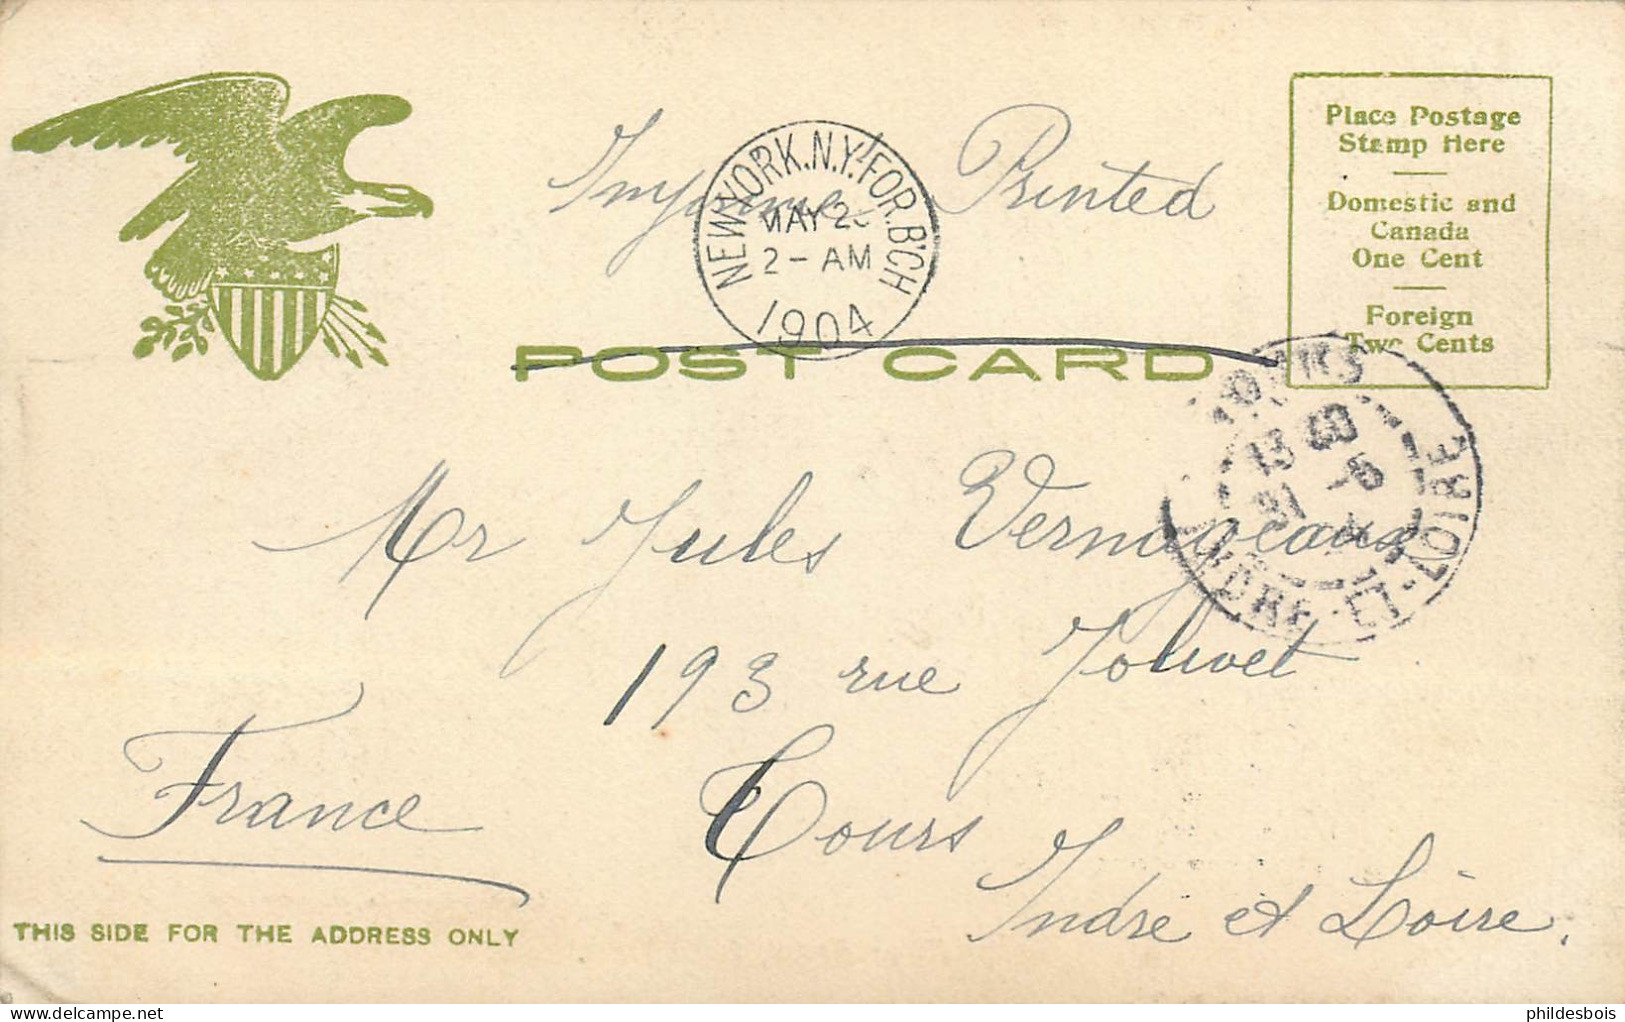 Imprimé Printed
NEW YORK. N.Y. FOR. B'CH
MAY 2
2 - AM
1904
Place Postage
Stamp Here
Domestic and
Canada
One Cent
Foreign
Two Cents
POST CARD
TOURS
13 30
31 -5
INDRE-ET-LOIRE
Mr Jules
193 rue Jolivet
France
Tours
Indre et Loire.
THIS SIDE FOR THE ADDRESS ONLY
phildesbois